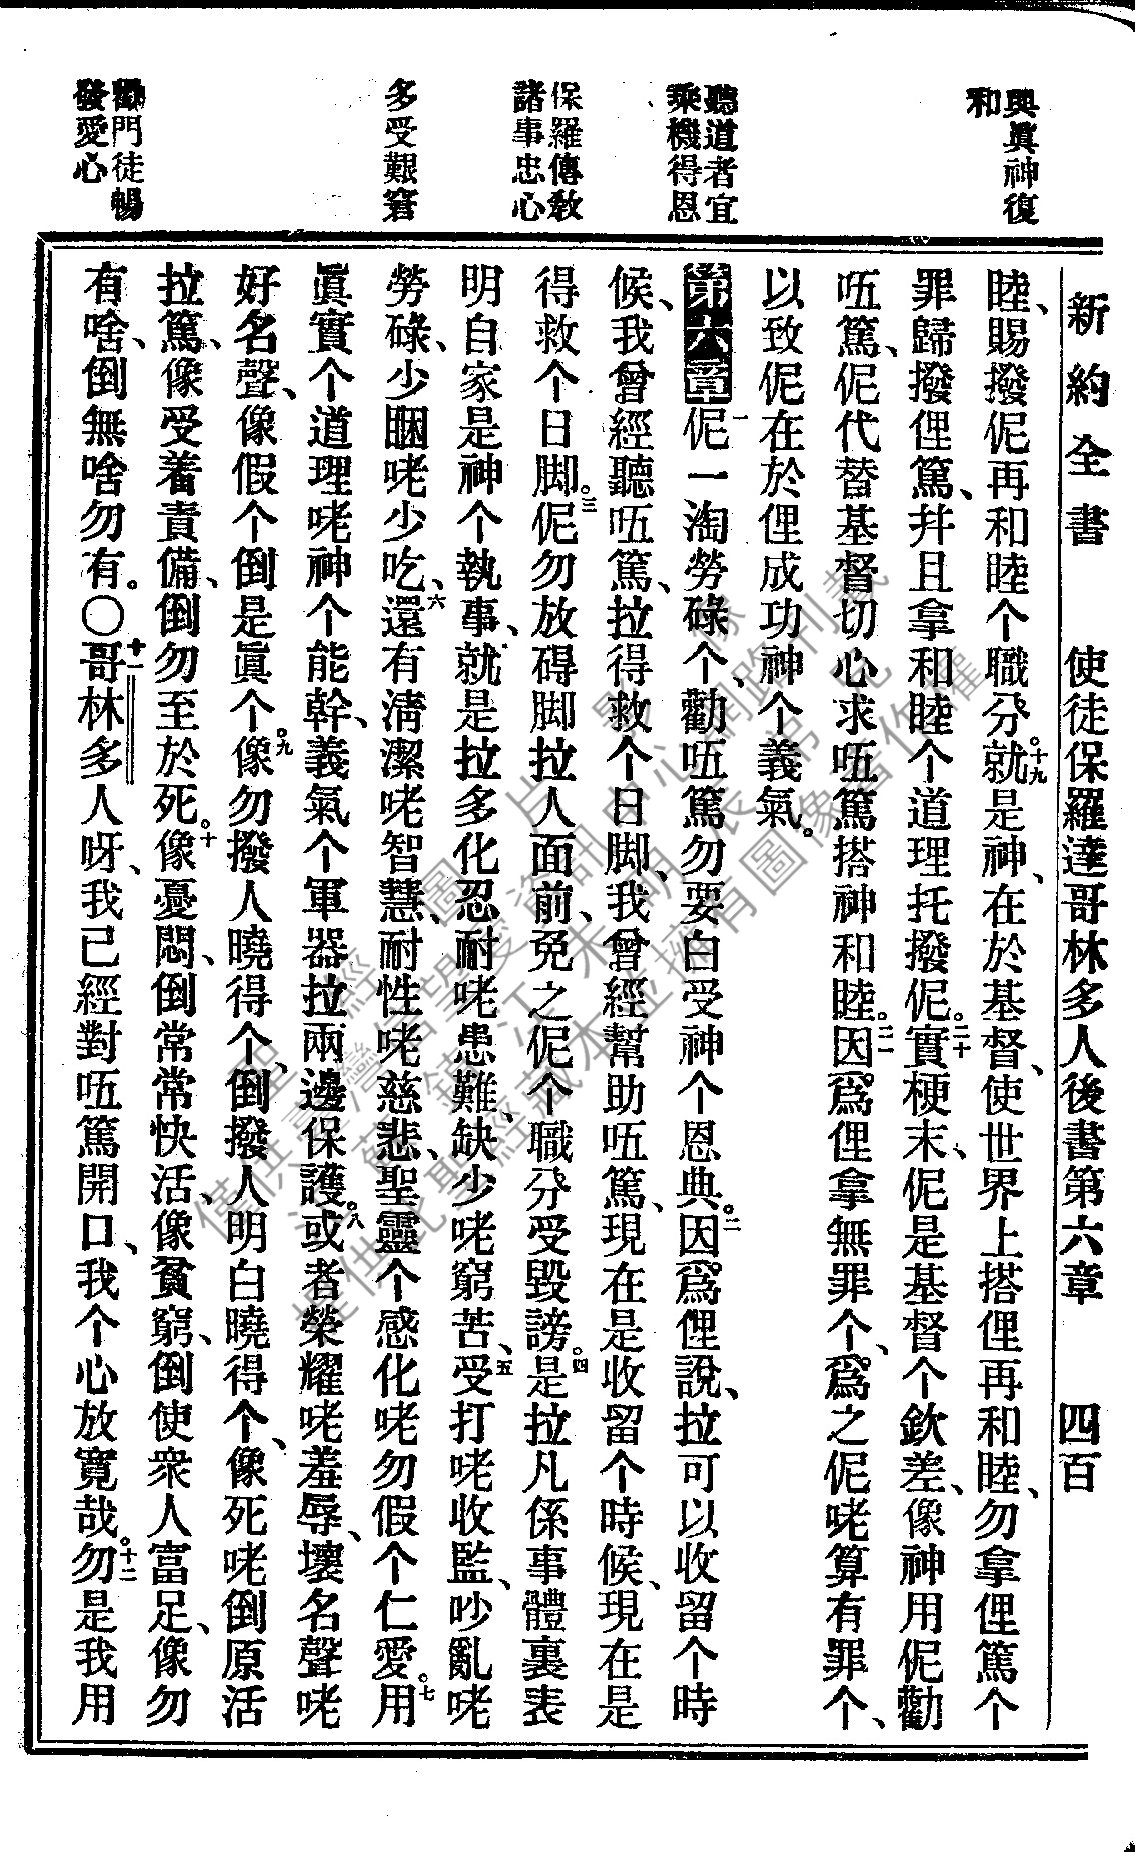 新約全書 使徒保羅達哥林多人後書第六章 四百
與眞神復
和
聽道者宜
乘機得恩
保羅傳敎
諸事忠心
多受艱窘
勸門徒暢
發愛心
睦、賜撥伲再和睦个職分。十九就是神、在於基督、使世界上搭俚再和睦、勿拿俚篤个
罪歸撥俚篤、幷且拿和睦个道理托撥伲。二十實梗末、伲是基督个欽差、像神用伲勸
㕶篤、伲代替基督切心求㕶篤搭神和睦。二一因爲俚拿無罪个、爲之伲咾算有罪个、
以致伲在於俚成功神个義氣。
第六章一伲一淘勞碌个、勸㕶篤勿要白受神个恩典。二因爲俚說、拉可以收留个時
候、我曾經聽㕶篤、拉得救个日脚、我曾經幫助㕶篤、現在是收留个時候、現在是
得救个日脚。三伲勿放碍脚拉人面前、免之伲个職分受毀謗。四是拉凡係事體裏表
明自家是神个執事、就是拉多化忍耐咾患難、缺少咾窮苦、五受打咾收監、吵亂咾
勞碌、少睏咾少吃、六還有淸潔咾智慧、耐性咾慈悲、聖靈个感化咾勿假个仁愛。七用
眞實个道理咾神个能幹、義氣个軍器拉兩邊保護。八或者榮耀咾羞辱、壞名聲咾
好名聲、像假个倒是眞个。九像勿撥人曉得个、倒撥人明白曉得个、像死咾倒原活
拉篤、像受着責備、倒勿至於死。十像憂悶、倒常常快活、像貧窮、倒使衆人富足、像勿
有啥、倒無啥勿有。〇十一哥林多人呀、我已經對㕶篤開口、我个心放寬哉。十二勿是我用